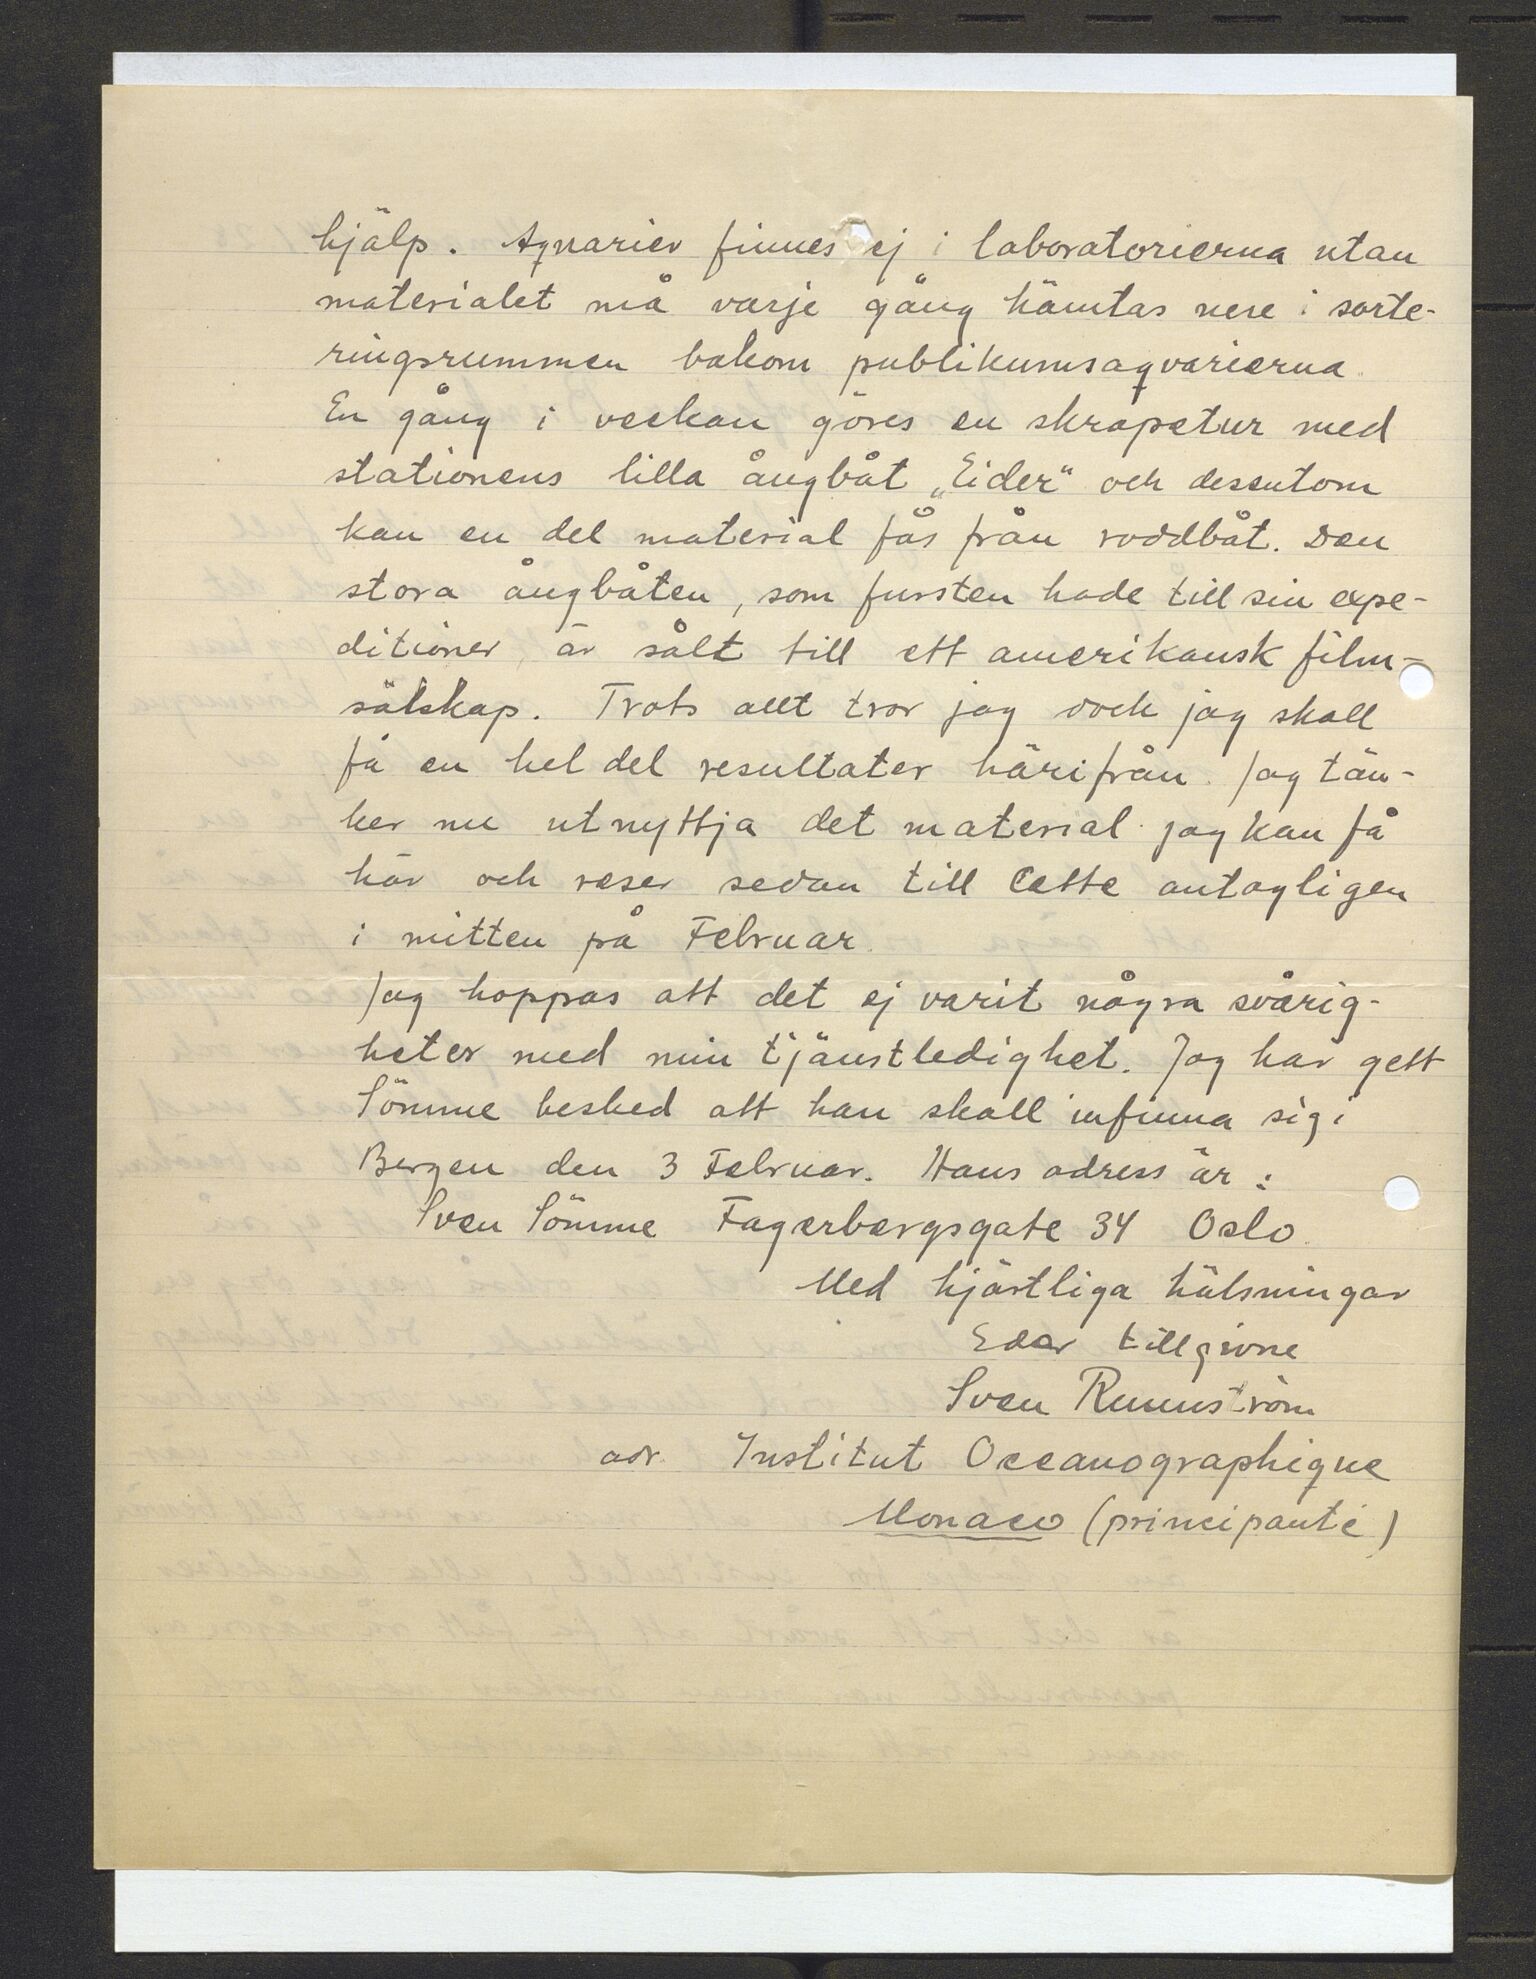 hjälp. Aqvarier finnes ej i laboratorierna utan
materialet må varje gång hämtas nere i sorte-
ringsrummen bakom publikumsaqvarierna.
En gång i veckan göres en skrapetur med
stationens lilla ångbåt „Eider" och desentom
kan en del material fås från roddbåt. Den
stora ångbåten, som fursten hade till sin expe-
ditioner, är sålt till ett amerikansk film-
sälskap. Trots allt tror jag dock jag skall
få en hel del resultater härifrån. Jag tän-
ker nu utnyttja det material jag kan få
här och reser sedan till Cette antagligen
i mitten på Februar.
Jag hoppas att det ej varit några svårig-
heter med min tjänstledighet. Jag har gett
Sömme besked att han skall infinna sig i
Bergen den 3 Februar. Hans adress är:
Sven Sömme Fagerbergsgate 34 Oslo.
Med hjärtliga hälsningar
Eder tillgivne
Sven Runnström
adr. Institut Oceanographique
Monaco (principauté)